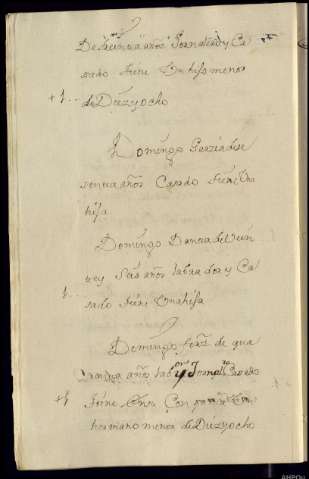 años Jornalero y Ca
sado tiene Un hijo menor
+1... de Diezyocho
Domingo Garzia de se
senta años Casado tiene Una
hija
Domingo Danza de Vein
tey Seis años labrador y Ca
1.. sado tiene Una hija
Domingo fernz de qua
años lab or y Jornal ro Casado
+1 tiene Con
hermano menor de Diezyocho